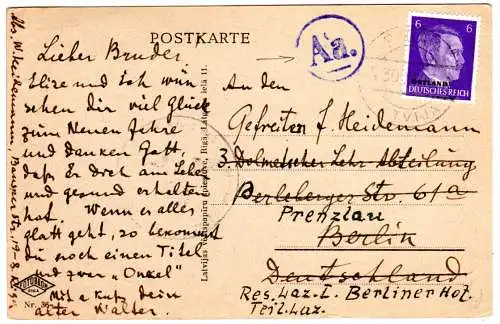 POSTKARTE
Lieber Bruder,
Elise und ich wün
schen dir viel Glück
zum Neuen Jahre
und danken Gott,
daß Er dich am Leben
und gesund erhalten
hat. Wenn er alles
glatt geht, so bekommst
du noch einen Titel
und zwar „Onkel"
Mit e Kuß dein
alter Walter.
Abs. W. Heidemann,
Aa.
6 6
OSTLAND
DEUTSCHES REICH
LATVIJA
An den
Gefreiten J. Heidemann
3. Dolmetscher Lehr Abteilung
Berleberger Str. 61a
Prenzlau
Berlin
Deutschland
Res. Laz. I. Berliner Hof.
Teil. Laz.
Latvijas vērtspapīru spiestuve, Rīgā,
RIGA
Nr. 36